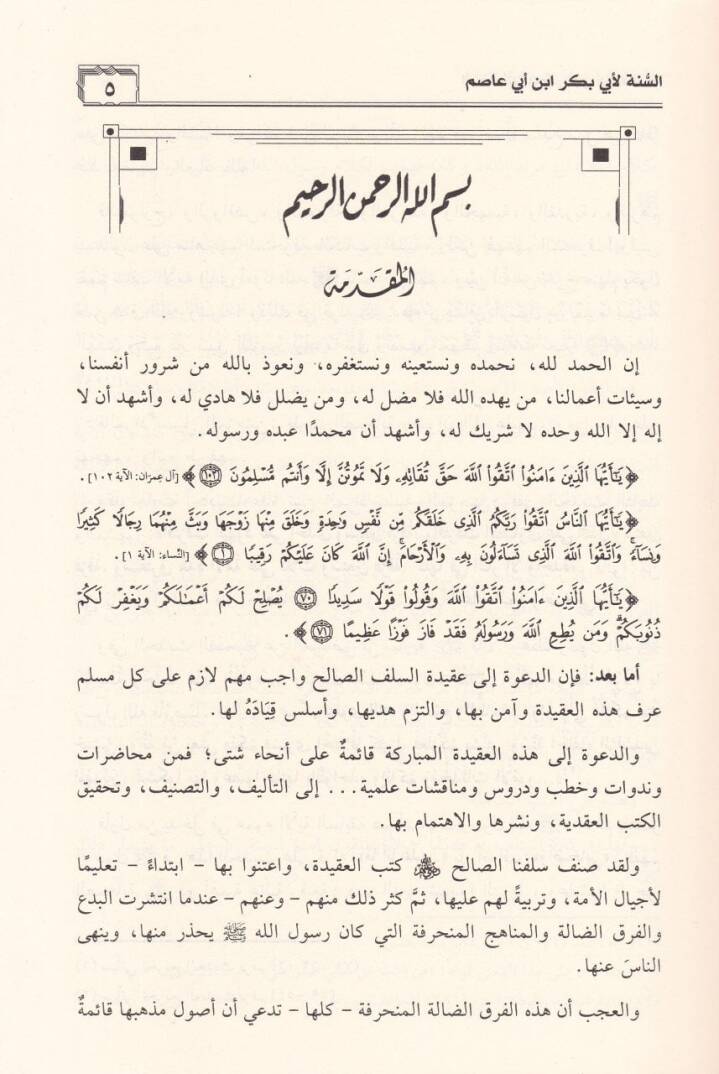 السُّنة لأبي بكر ابن أبي عاصم
٥
بسم الله الرحمن الرحيم
المقدمة
إن الحمد لله، نحمده ونستعينه ونستغفره، ونعوذ بالله من شرور أنفسنا،
وسيئات أعمالنا، من يهده الله فلا مضل له، ومن يضلل فلا هادي له، وأشهد أن لا
إله إلا الله وحده لا شريك له، وأشهد أن محمدًا عبده ورسوله.
﴿يَٰٓأَيُّهَا ٱلَّذِينَ ءَامَنُوا۟ ٱتَّقُوا۟ ٱللَّهَ حَقَّ تُقَاتِهِۦ وَلَا تَمُوتُنَّ إِلَّا وَأَنتُم مُّسْلِمُونَ ١٠٢﴾ [آل عِمرَان: الآية ١٠٢].
﴿يَٰٓأَيُّهَا ٱلنَّاسُ ٱتَّقُوا۟ رَبَّكُمُ ٱلَّذِى خَلَقَكُم مِّن نَّفْسٍ وَٰحِدَةٍ وَخَلَقَ مِنْهَا زَوْجَهَا وَبَثَّ مِنْهُمَا رِجَالًا كَثِيرًا
وَنِسَآءً ۚ وَٱتَّقُوا۟ ٱللَّهَ ٱلَّذِى تَسَآءَلُونَ بِهِۦ وَٱلْأَرْحَامَ ۚ إِنَّ ٱللَّهَ كَانَ عَلَيْكُمْ رَقِيبًا ١﴾ [النِّساء: الآية ١].
﴿يَٰٓأَيُّهَا ٱلَّذِينَ ءَامَنُوا۟ ٱتَّقُوا۟ ٱللَّهَ وَقُولُوا۟ قَوْلًا سَدِيدًا ٧٠ يُصْلِحْ لَكُمْ أَعْمَٰلَكُمْ وَيَغْفِرْ لَكُمْ
ذُنُوبَكُمْ ۗ وَمَن يُطِعِ ٱللَّهَ وَرَسُولَهُۥ فَقَدْ فَازَ فَوْزًا عَظِيمًا ٧١﴾.
أما بعد: فإن الدعوة إلى عقيدة السلف الصالح واجب مهم لازم على كل مسلم
عرف هذه العقيدة وآمن بها، والتزم هديها، وأسلس قِيَادَهُ لها.
والدعوة إلى هذه العقيدة المباركة قائمةٌ على أنحاء شتى؛ فمن محاضرات
وندوات وخطب ودروس ومناقشات علمية... إلى التأليف، والتصنيف، وتحقيق
الكتب العقدية، ونشرها والاهتمام بها.
ولقد صنف سلفنا الصالح كتب العقيدة، واعتنوا بها - ابتداءً - تعليمًا
لأجيال الأمة، وتربيةً لهم عليها، ثمَّ كثر ذلك منهم - وعنهم - عندما انتشرت البدع
والفرق الضالة والمناهج المنحرفة التي كان رسول الله ﷺ يحذر منها، وينهى
الناسَ عنها.
والعجب أن هذه الفرق الضالة المنحرفة - كلها - تدعي أن أصول مذهبها قائمةٌ